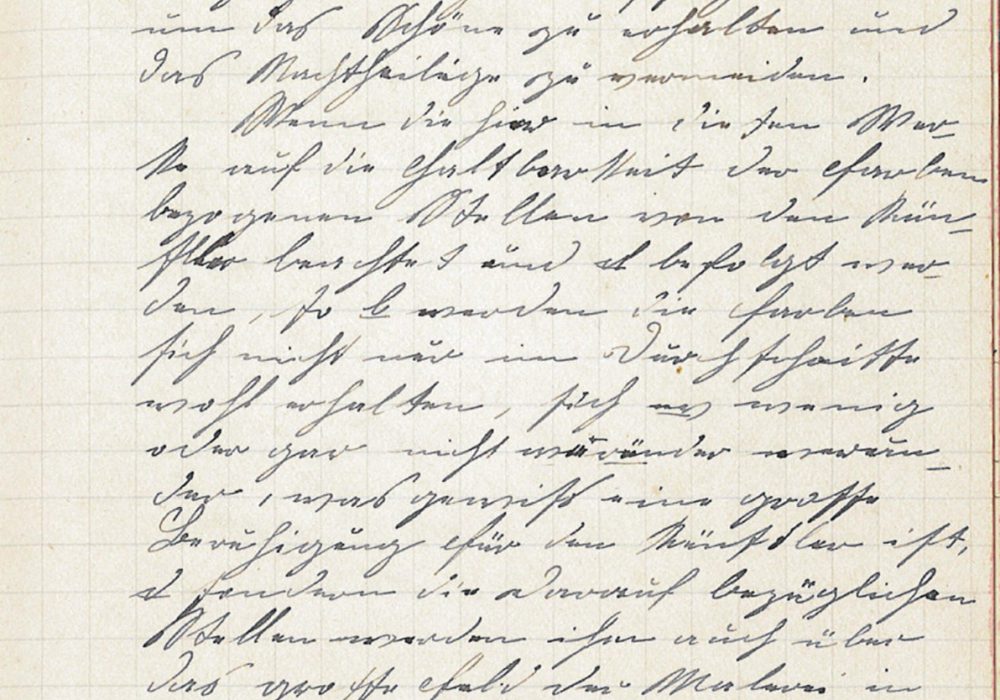 um das Schöne zu erhalten und
das Nachtheilige zu vermeiden.
Wenn die hier in diesen Wer-
ke auf die Haltbarkeit der Farben
bezogenen Stellen von den Kün-
stler beachtet und befolgt wer-
den, so werden die Farben
sich nicht nur im Durchschnitte
wohl erhalten, sich wenig
oder gar nicht verän-
der, was gewiß eine grosse
Beruhigung für den Künstler ist,
sondern die darauf bezüglichen
Stellen werden ihm auch über
das grosse Feld der Malerei in